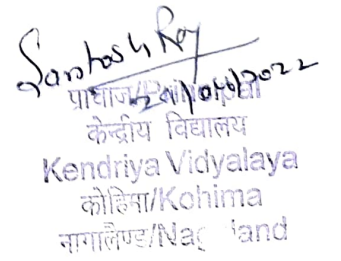 Santosh Roy
प्राचार्य/Principal
केन्द्रीय विद्यालय
Kendriya Vidyalaya
कोहिमा/Kohima
नागालैण्ड/Nagaland